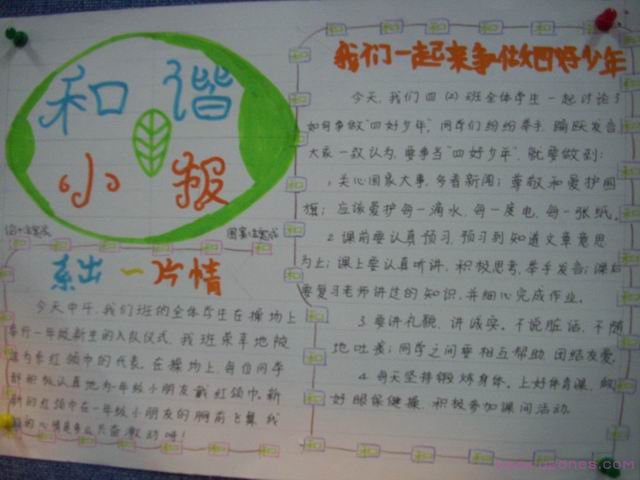 和谐
小报
系出一片情
今天中午,我们班的全体学生在操场上
举行一年级新生的入队仪式,我班荣幸地被
选为系红领巾的代表。在操场上,每位同学
都积极认真地为一年级小朋友戴红领巾。新
新的红领巾在一年级小朋友的胸前飞舞,我
们的心情是多么兴奋激动呀!
我们一起来争做四好少年
今天,我们四(2)班全体学生一起讨论了
如何争做"四好少年",同学们纷纷举手,踊跃发言
大家一致认为,要争当"四好少年"就要做到:
1.关心国家大事,多看新闻;尊敬和爱护国
旗;应该爱护每一滴水、每一度电、每一张纸。
2.课前要认真预习,预习到知道文章意思
为止;课上要认真听讲,积极思考,举手发言;课后
要复习老师讲过的知识,并细心完成作业。
3.要讲礼貌、讲诚实。不说脏话,不随
地吐痰;同学之间要相互帮助,团结友爱。
4.每天坚持锻炼身体。上好体育课,做
好眼保健操,积极参加课间活动。